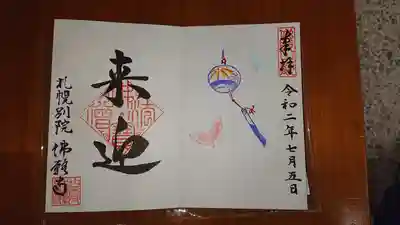 奉拝
令和二年七月五日
来迎
札幌別院
佛願寺